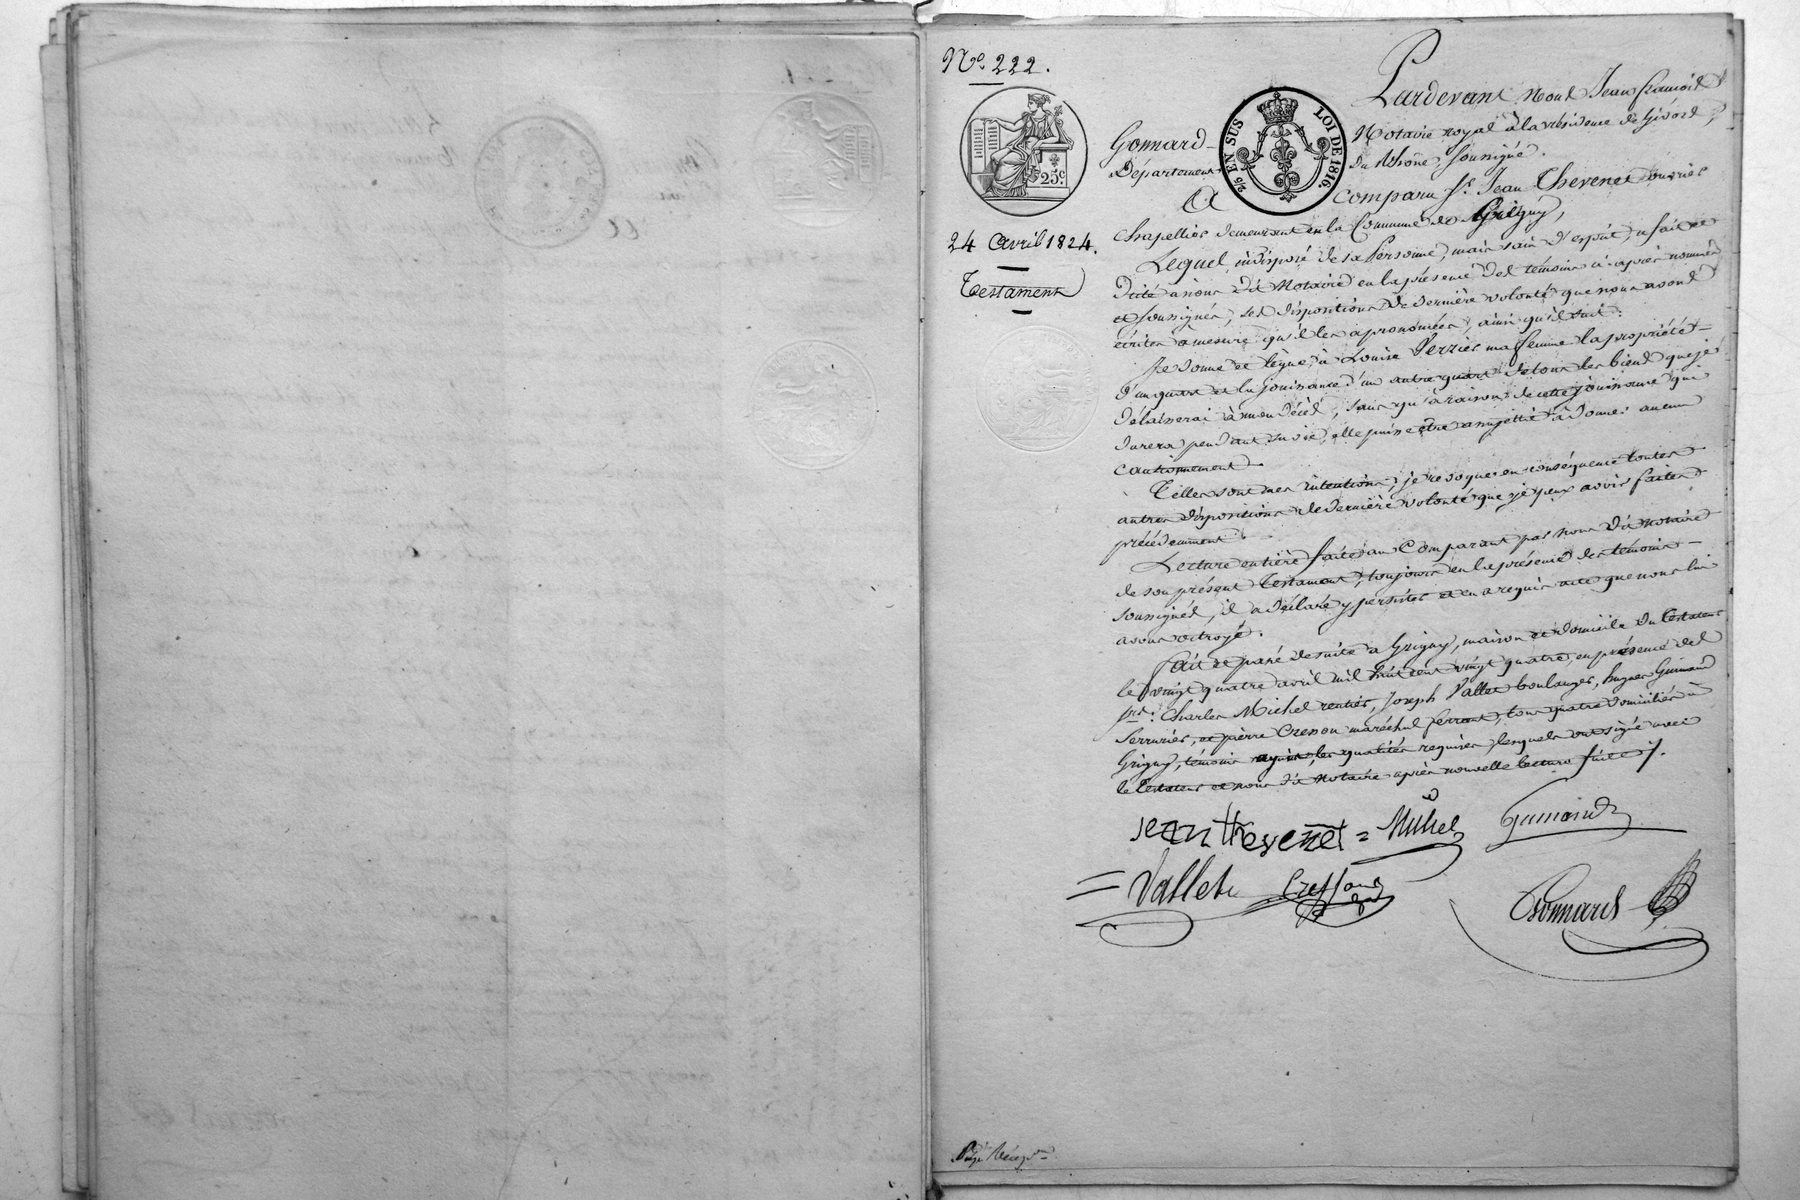 N.º 222.
Pardevant Nous Jean françois
Gonnard Notaire royal à la résidence de Givors,
Département du Rhône, soussigné.
25 c.
2/5 EN SUS LOI DE 1816.
A comparu s.r Jean Thevenet ouvrier
24 Avril 1824.
Testament
Chapellier demeurant en la Commune de Grigny,
Lequel, indisposé de sa Personne, mais sain d'esprit, a fait et
dicté à nous dit Notaire en la présence des témoins ci-après nommés
et soussignés, ses dispositions de dernière volonté que nous avons
écrites à mesure qu'il les a prononcées, ainsi qu'il suit:
Je donne et lègue à Louise Verrier ma femme la propriété
d'un quart et la jouissance d'un autre quart de tous les biens que je
délaisserai à mon décès, sans qu'à raison de cette jouissance qui
durera pendant sa vie, elle puisse être assujettie à donner aucun
cautionnement.
Telles sont mes intentions; je révoque en conséquence toutes
autres dispositions de dernière volonté que je peux avoir faites
précédemment.
Lecture entière faite au Comparant par nous dit notaire
de son présent Testament, toujours en la présence des témoins
soussignés, il a déclaré y persister et en a requis acte que nous lui
avons octroyé.
fait et passé de suite à Grigny, maison et domicile du testateur
le vingt quatre avril mil huit cent vingt quatre, en présence des
srs. Charles Michel rentier, Joseph Vallet boulanger, hugues Guimand
Serrurier, et pierre Cresson maréchal ferrant, tous quatre domiciliés à
Grigny, témoins ayant les qualités requises, lesquels ont signé avec
le testateur et nous dit Notaire après nouvelle lecture faite ./.
jean thevenet = Michel Guimand
= Vallet Cresson
Gonnard